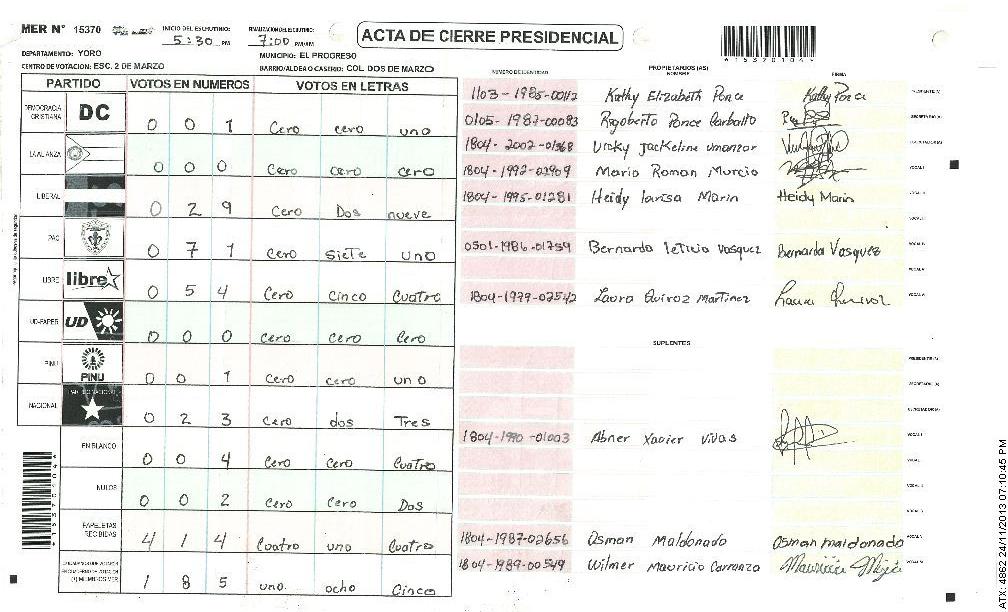 MER N° 15370
INICIO DEL ESCRUTINIO: 5:30 PM
FINALIZACION ESCRUTINIO: 7:00 PM/AM
ACTA DE CIERRE PRESIDENCIAL
DEPARTAMENTO: YORO
MUNICIPIO: EL PROGRESO
CENTRO DE VOTACION: ESC. 2 DE MARZO
BARRIO/ALDEA O CASERIO: COL. DOS DE MARZO
PARTIDO VOTOS EN NUMEROS VOTOS EN LETRAS
DEMOCRACIA CRISTIANA DC 0 0 1 Cero cero uno
LA ALIANZA 0 0 0 Cero cero cero
LIBERAL 0 2 9 Cero Dos nueve
PAC 0 7 1 Cero siete uno
LIBRE libre 0 5 4 Cero Cinco Cuatro
UD-FAPER UD 0 0 0 Cero cero Cero
PINU PINU 0 0 1 Cero cero uno
NACIONAL 0 2 3 Cero dos Tres
EN BLANCO 0 0 4 Cero Cero Cuatro
NULOS 0 0 2 Cero Cero Dos
PAPELETAS RECIBIDAS 4 1 4 Cuatro uno Cuatro
1 8 5 uno. ocho Cinco
NUMERO DE IDENTIDAD PROPIETARIOS (AS) NOMBRE FIRMA
1103-1985-00112 Kathy Elizabeth Ponce Kathy Ponce
0105-1987-00083 Rigoberto Ponce Carballo
1804-2002-01368 Vicky Jackeline Umanzor
1804-1992-02909 Mario Roman Murcia
1804-1995-01281 Heidy larisa Marin Heidy Marin
0501-1986-01759 Bernarda leticia Vasquez Bernarda Vasquez
1804-1979-02542 Laura Quiroz Martinez
SUPLENTES
1804-1990-01003 Abner Xavier Vivas
1804-1987-02656 Osman Maldonado Osman maldonado
1804-1989-00549 Wilmer Mauricio Carranza
ATX: 4862 24/11/2013 07:10:45 PM